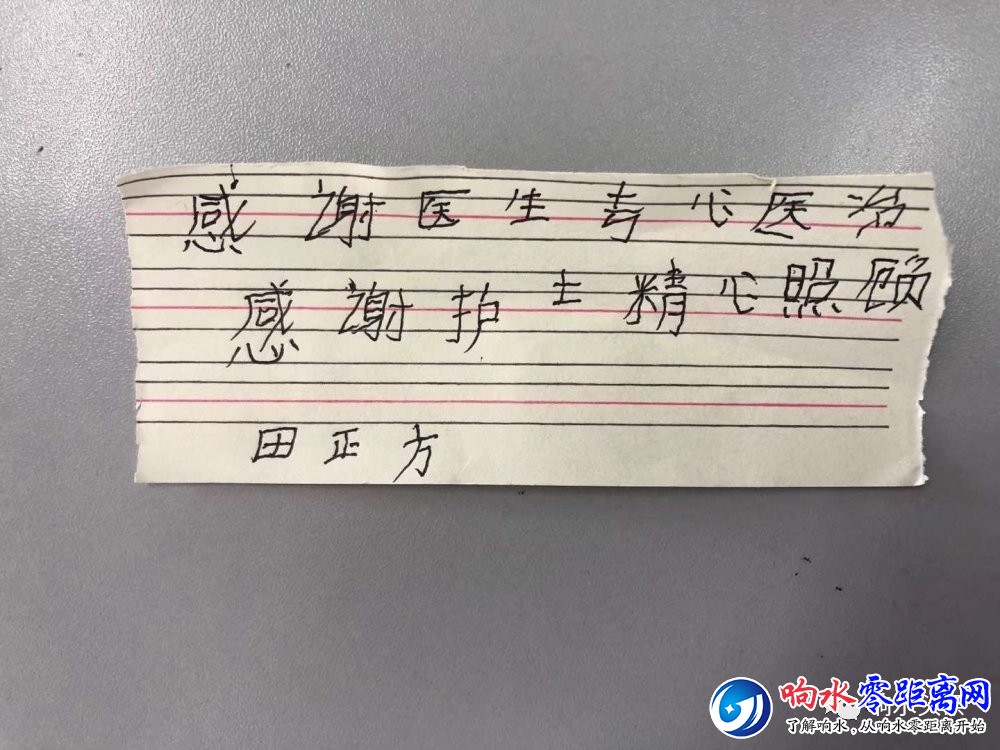 感谢医生专心医治
感谢护士精心照顾
田正方
响水零距离网
了解响水，从响水零距离开始